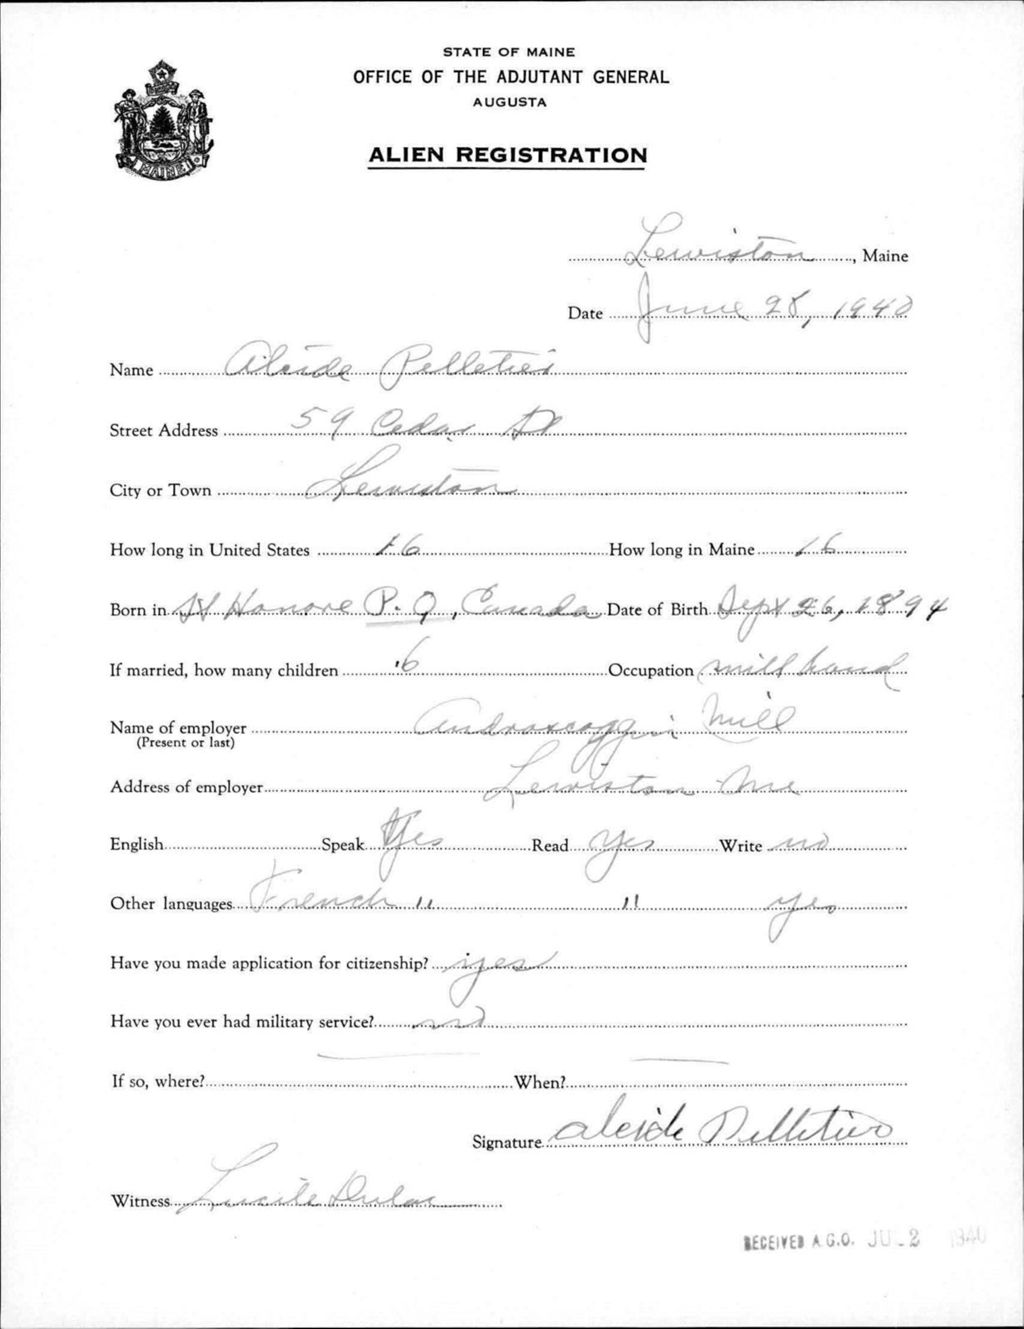 STATE OF MAINE
OFFICE OF THE ADJUTANT GENERAL
AUGUSTA
ALIEN REGISTRATION
MAINE
Lewiston, Maine
Date June 28, 1940
Name Alcide Pelletier
Street Address 59 Cedar St
City or Town Lewiston
How long in United States 16 How long in Maine 16
Born in St Honore P.Q, Canada Date of Birth Sept 26, 1894
If married, how many children 6 Occupation mill hand
Name of employer Androscoggin Mill
(Present or last)
Address of employer Lewiston Me
English Speak Yes Read Yes Write no
Other languages French " " yes
Have you made application for citizenship? yes
Have you ever had military service? no
If so, where? — When? —
Signature Alcide Pelletier
Witness Lucile Dulac
RECEIVED A.G.O. JUL 2 1940